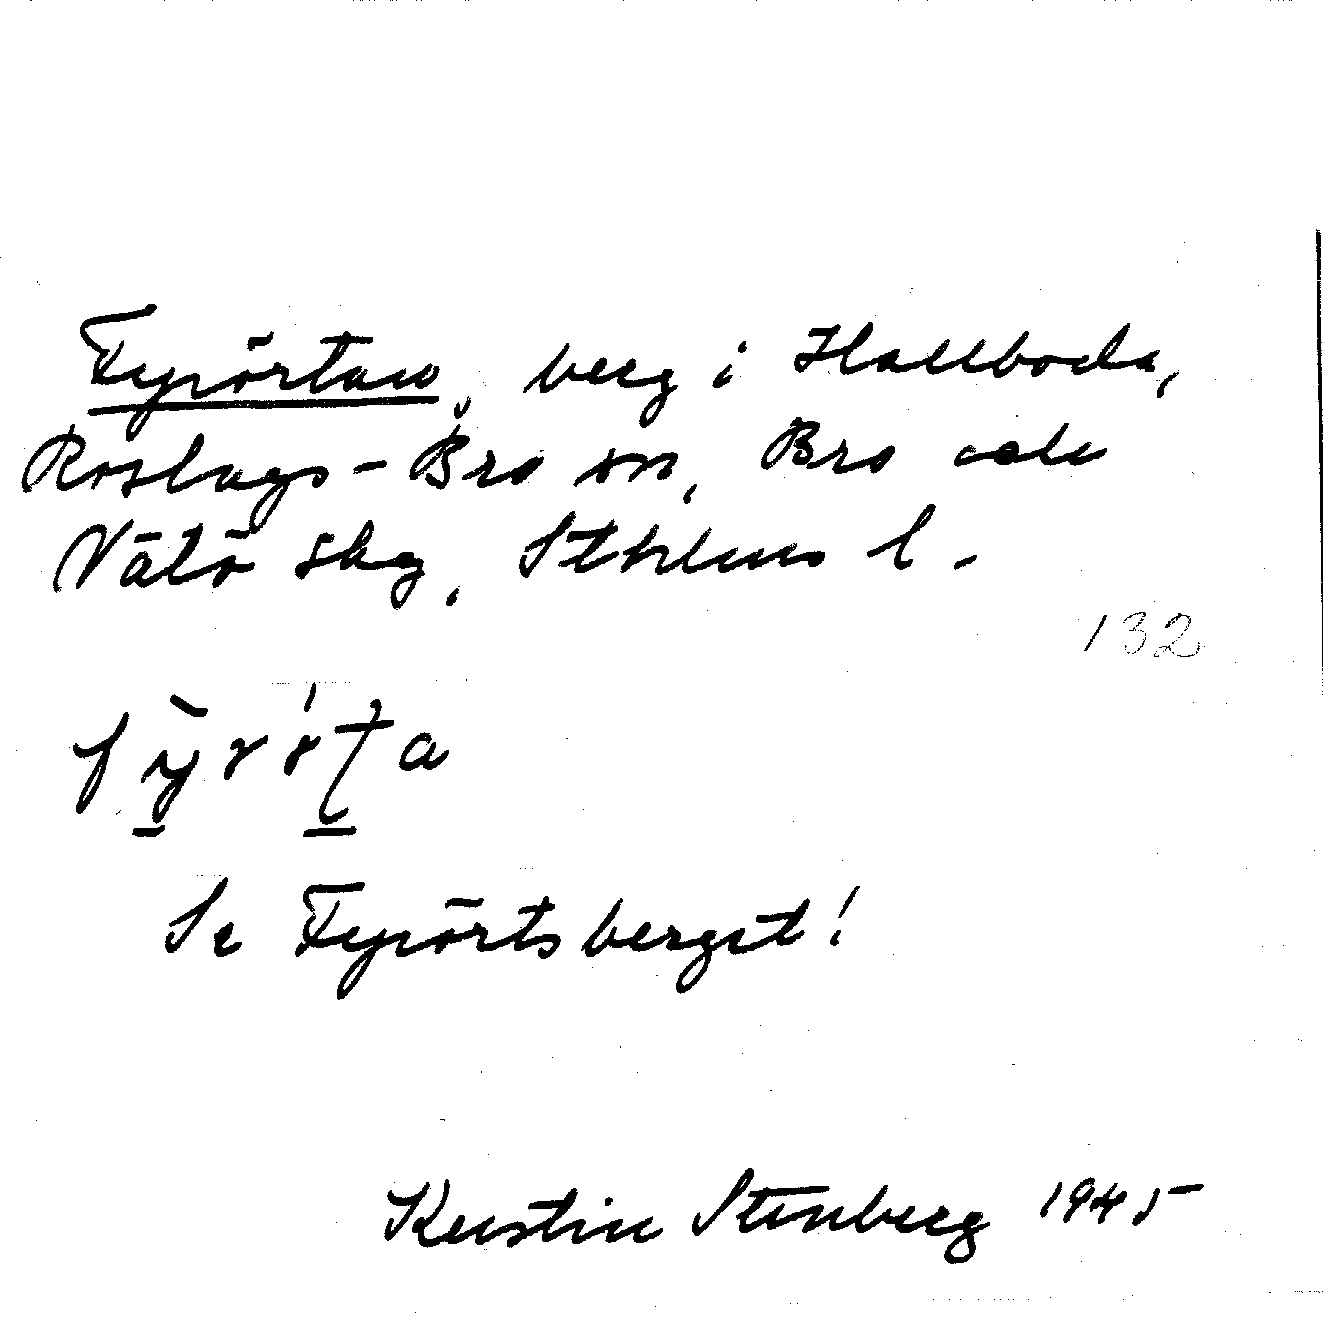 Fyrörtan, berg i Hallboda,
Roslags-Bro sn, Bro och
Vätö skg, Sthlms l.
132
Se Fyrörtsberget!
Kerstin Stenberg 1945